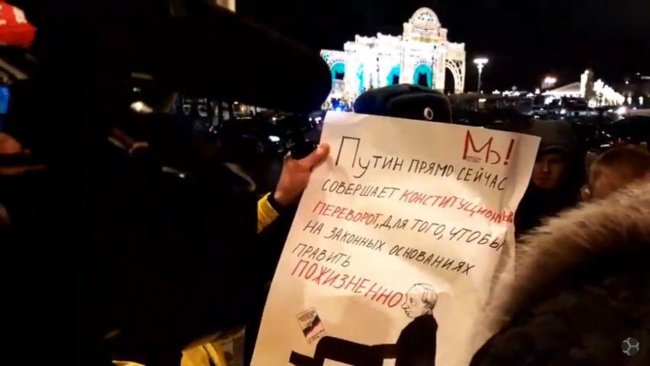 Мы!
Путин прямо сейчас
совершает конституционный
переворот, для того, чтобы
на законных основаниях
править
пожизненно